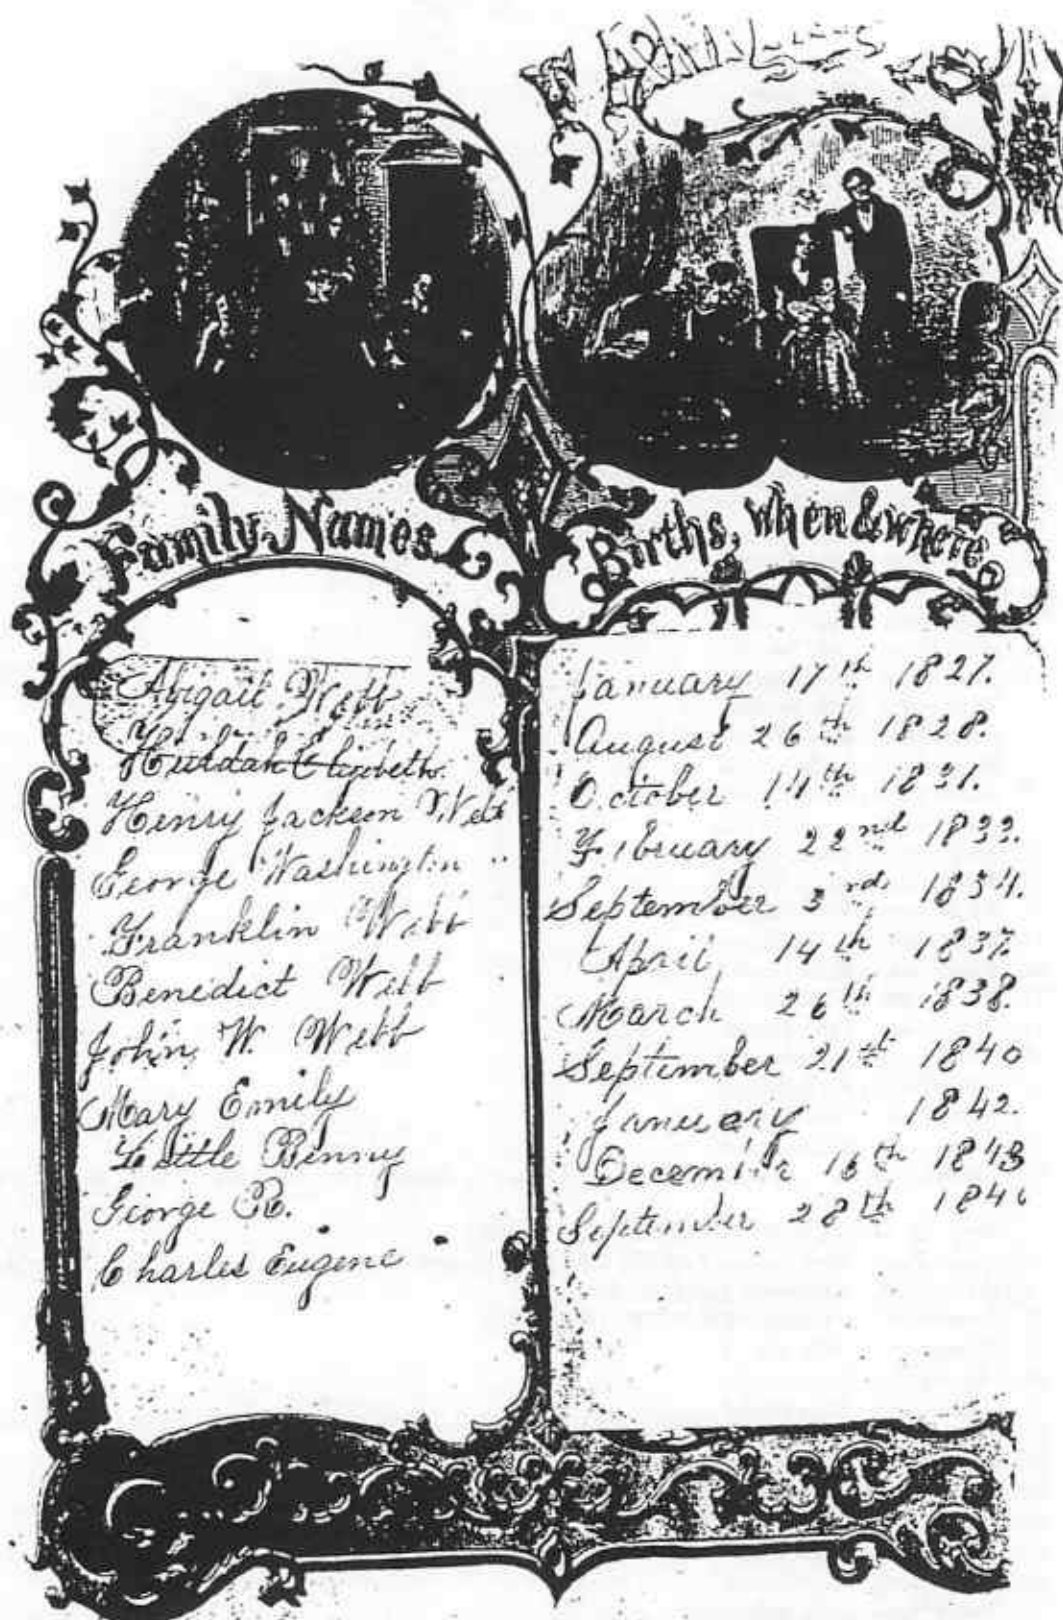 Family Names
Births, when & where
Abigail Webb
Huldah Elizbeth
Henry Jackson Webb
George Washington "
Franklin Webb
Benedict Webb
John W. Webb
Mary Emily
Little Benny
George R.
Charles Eugene
January 17th 1827.
August 26th 1828.
October 14th 1831.
February 22nd 1833.
September 3rd 1834.
April 14th 1837.
March 26th 1838.
September 21st 1840
January 1842.
December 16th 1843
September 28th